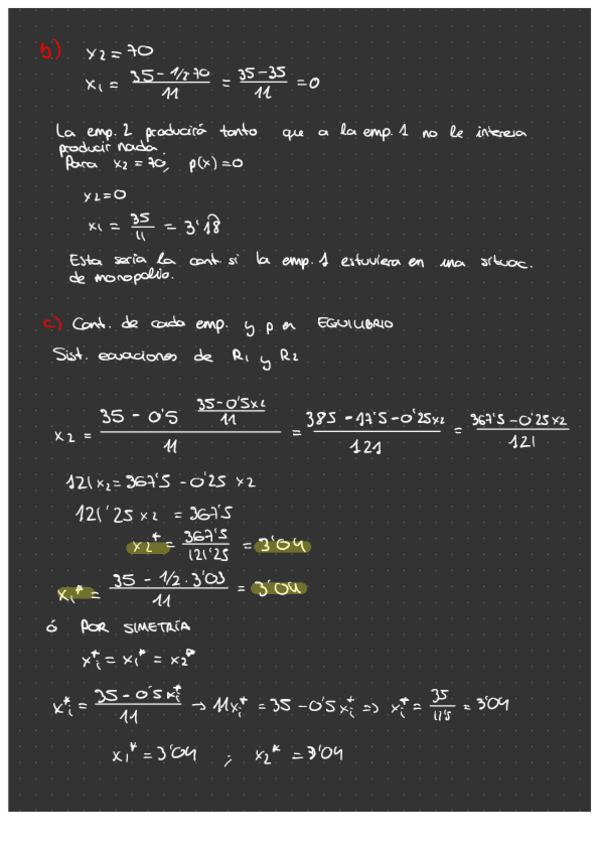 b) x2 = 70
x1 = (35 - 1/2 70)/11 = (35-35)/11 = 0
La emp. 2 producirá tanto que a la emp. 1 no le interesa
producir nada.
Para x2 = 70, p(x) = 0
x2 = 0
x1 = 35/11 = 3'18
Esta sería la cant si la emp. 1 estuviera en una situac.
de monopolio.
c) Cant. de cada emp. y p en EQUILIBRIO
Sist. ecuaciones de R1 y R2
x2 = (35 - 0'5 (35-0'5x2)/11)/11 = (385 - 17'5 - 0'25x2)/121 = (367'5 - 0'25x2)/121
121x2 = 367'5 - 0'25 x2
121'25 x2 = 367'5
x2* = 367'5/121'25 = 3'04
x1* = (35 - 1/2 · 3'03)/11 = 3'04
ó POR SIMETRÍA
xi* = x1* = x2*
xi* = (35 - 0'5xi*)/11 → 11xi* = 35 - 0'5xi* => xi* = 35/11'5 = 3'04
x1* = 3'04 ; x2* = 3'04